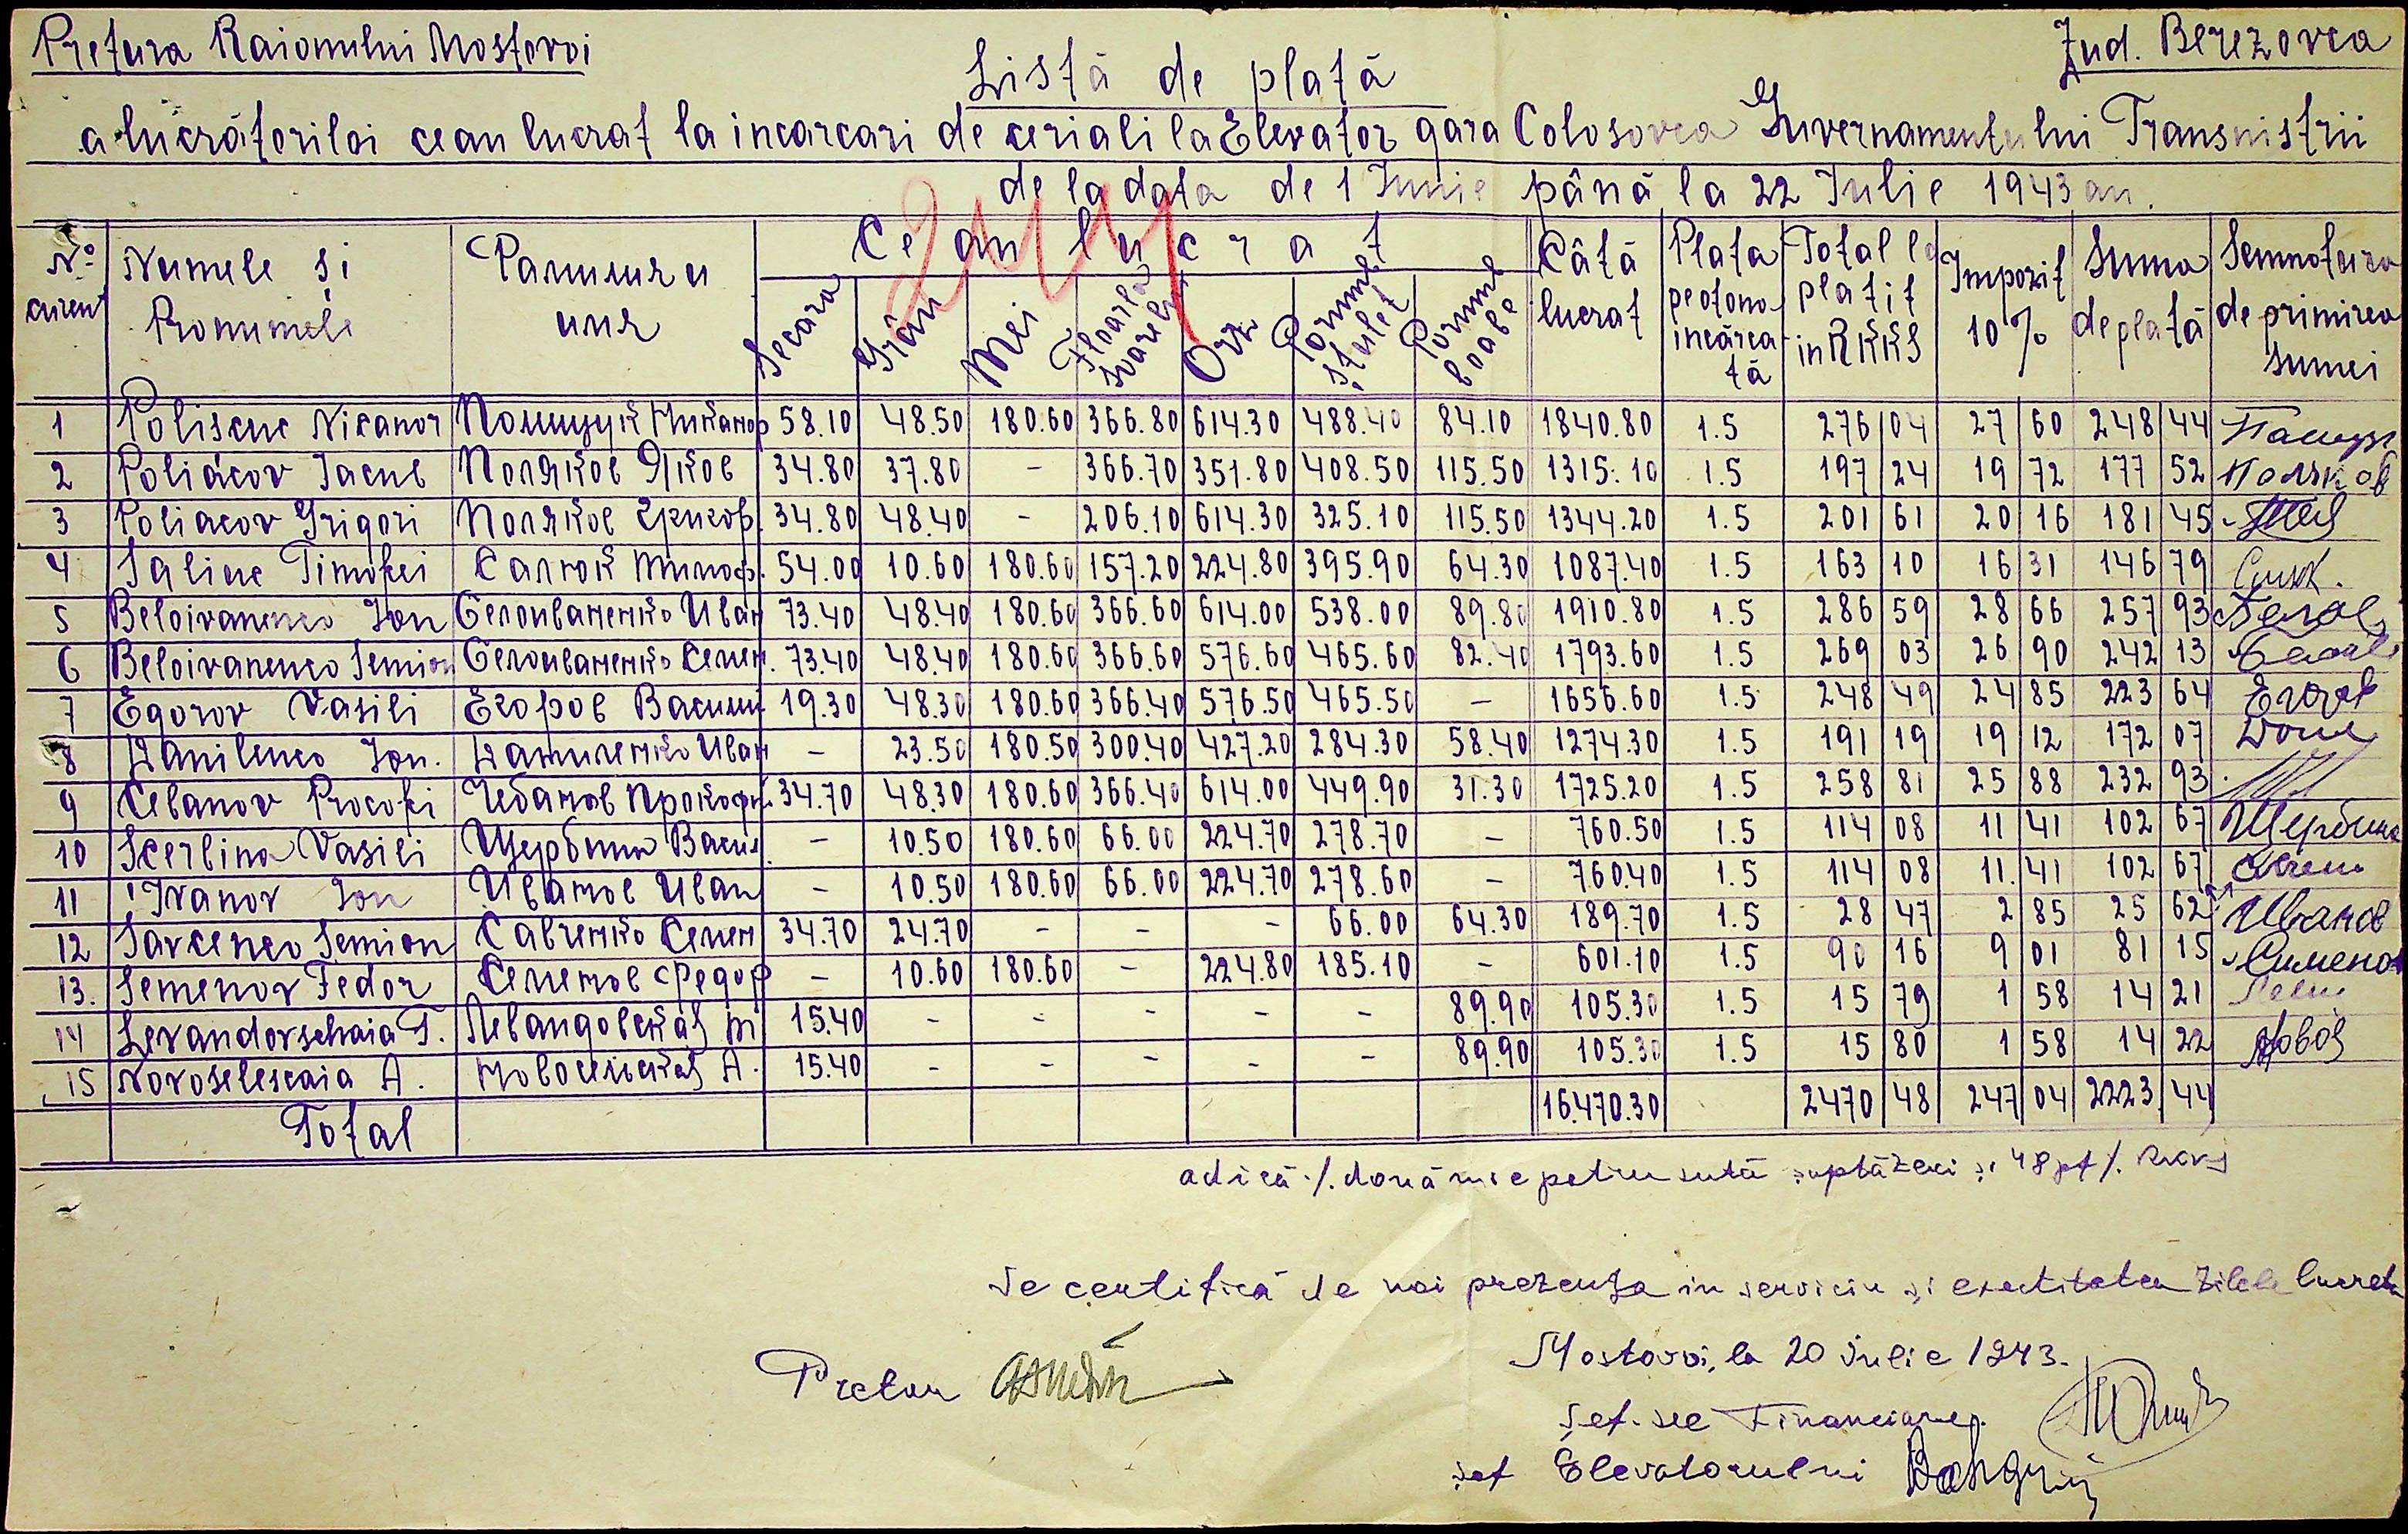 Pretura Raionului Mostovoi
Jud. Berezovca
Listă de plată
a lucrătorilor ce au lucrat la incarcari de ceriali la Elevator gara Colosovca Guvernamentului Transnistrii
de la data de 1 Iunie până la 22 Iulie 1943 an.
No curent | Numele si Pronumele | Фамилия и имя | Ce au lucrat | Câtă lucrat | Plata peotono incărca tă | Total la platit in RKKS | Impozit 10% | Suma de plată | Semnotura de primirea sumei
Secara | Grâu | Mei | Floarla soarelui | Orz | Porumb știulet | Porumb boabe
1 Poliscuc Nicanor Полищук Никанор 58.10 48.50 180.60 366.80 614.30 488.40 84.10 1840.80 1.5 276 04 27 60 248 44
2 Poliacov Iacub Поляков Яков 34.80 37.80 - 366.70 351.80 408.50 115.50 1315.10 1.5 197 24 19 72 177 52 Поляков
3 Poliacov Grigori Поляков Григор. 34.80 48.40 - 206.10 614.30 325.10 115.50 1344.20 1.5 201 61 20 16 181 45
4 Saliuc Timofei Салюк Тимоф. 54.00 10.60 180.60 157.20 224.80 395.90 64.30 1087.40 1.5 163 10 16 31 146 79
5 Beloivanenco Ion Белоиваненко Иван 73.40 48.40 180.60 366.60 614.00 538.00 89.80 1910.80 1.5 286 59 28 66 257 93
6 Beloivanenco Semion Белоиваненко Семен. 73.40 48.40 180.60 366.60 576.60 465.60 82.40 1793.60 1.5 269 03 26 90 242 13
7 Egorov Vasili Егоров Васили 19.30 48.30 180.60 366.40 576.50 465.50 - 1656.60 1.5 248 49 24 85 223 64
8 Danilenco Ion. Даниленко Иван - 23.50 180.50 300.40 427.20 284.30 58.40 1274.30 1.5 191 19 19 12 172 07
9 Cebanov Procofi Чебанов Прокофи. 34.70 48.30 180.60 366.40 614.00 449.90 31.30 1725.20 1.5 258 81 25 88 232 93
10 Scerbina Vasili Щербина Васил. - 10.50 180.60 66.00 224.70 278.70 - 760.50 1.5 114 08 11 41 102 67 Щербина
11 Ivanov Ion Иванов Иван - 10.50 180.60 66.00 224.70 278.60 - 760.40 1.5 114 08 11 41 102 67
12 Savcenco Semion Савченко Семен 34.70 24.70 - - - 66.00 64.30 189.70 1.5 28 47 2 85 25 62 Иванов
13. Semenov Fedor Семенов Федор - 10.60 180.60 - 224.80 185.10 - 601.10 1.5 90 16 9 01 81 15 Симено
14 Levandovschaia T. Левандовская Т 15.40 - - - - - 89.90 105.30 1.5 15 79 1 58 14 21
15 Novoselescaia A. Новосельская А. 15.40 - - - - - 89.90 105.30 1.5 15 80 1 58 14 22
Total 16.470.30 2470 48 247 04 2223 44
adică ./. două mie patru sută șaptăzeci și 48 pf ./. RKKS
Se certifică de noi prezența in serviciu și exactitatea zilele lucrate
Mostovoi, la 20 iulie 1943.
Pretor
Șef. sec Financiare
Șef Elevatorului